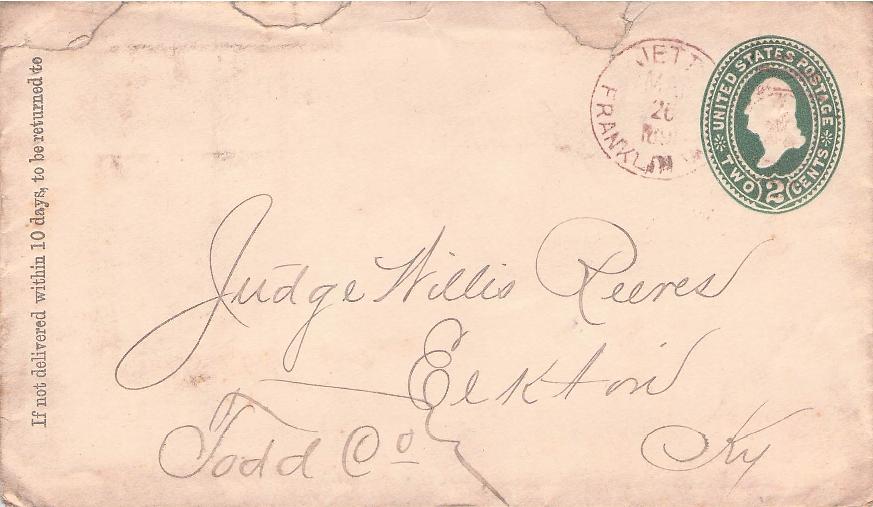 If not delivered within 10 days, to be returned to
JETT
26
FRANKLIN
UNITED STATES POSTAGE
TWO 2 CENTS
Judge Willis Reeves
Elkton
Todd Co
Ky